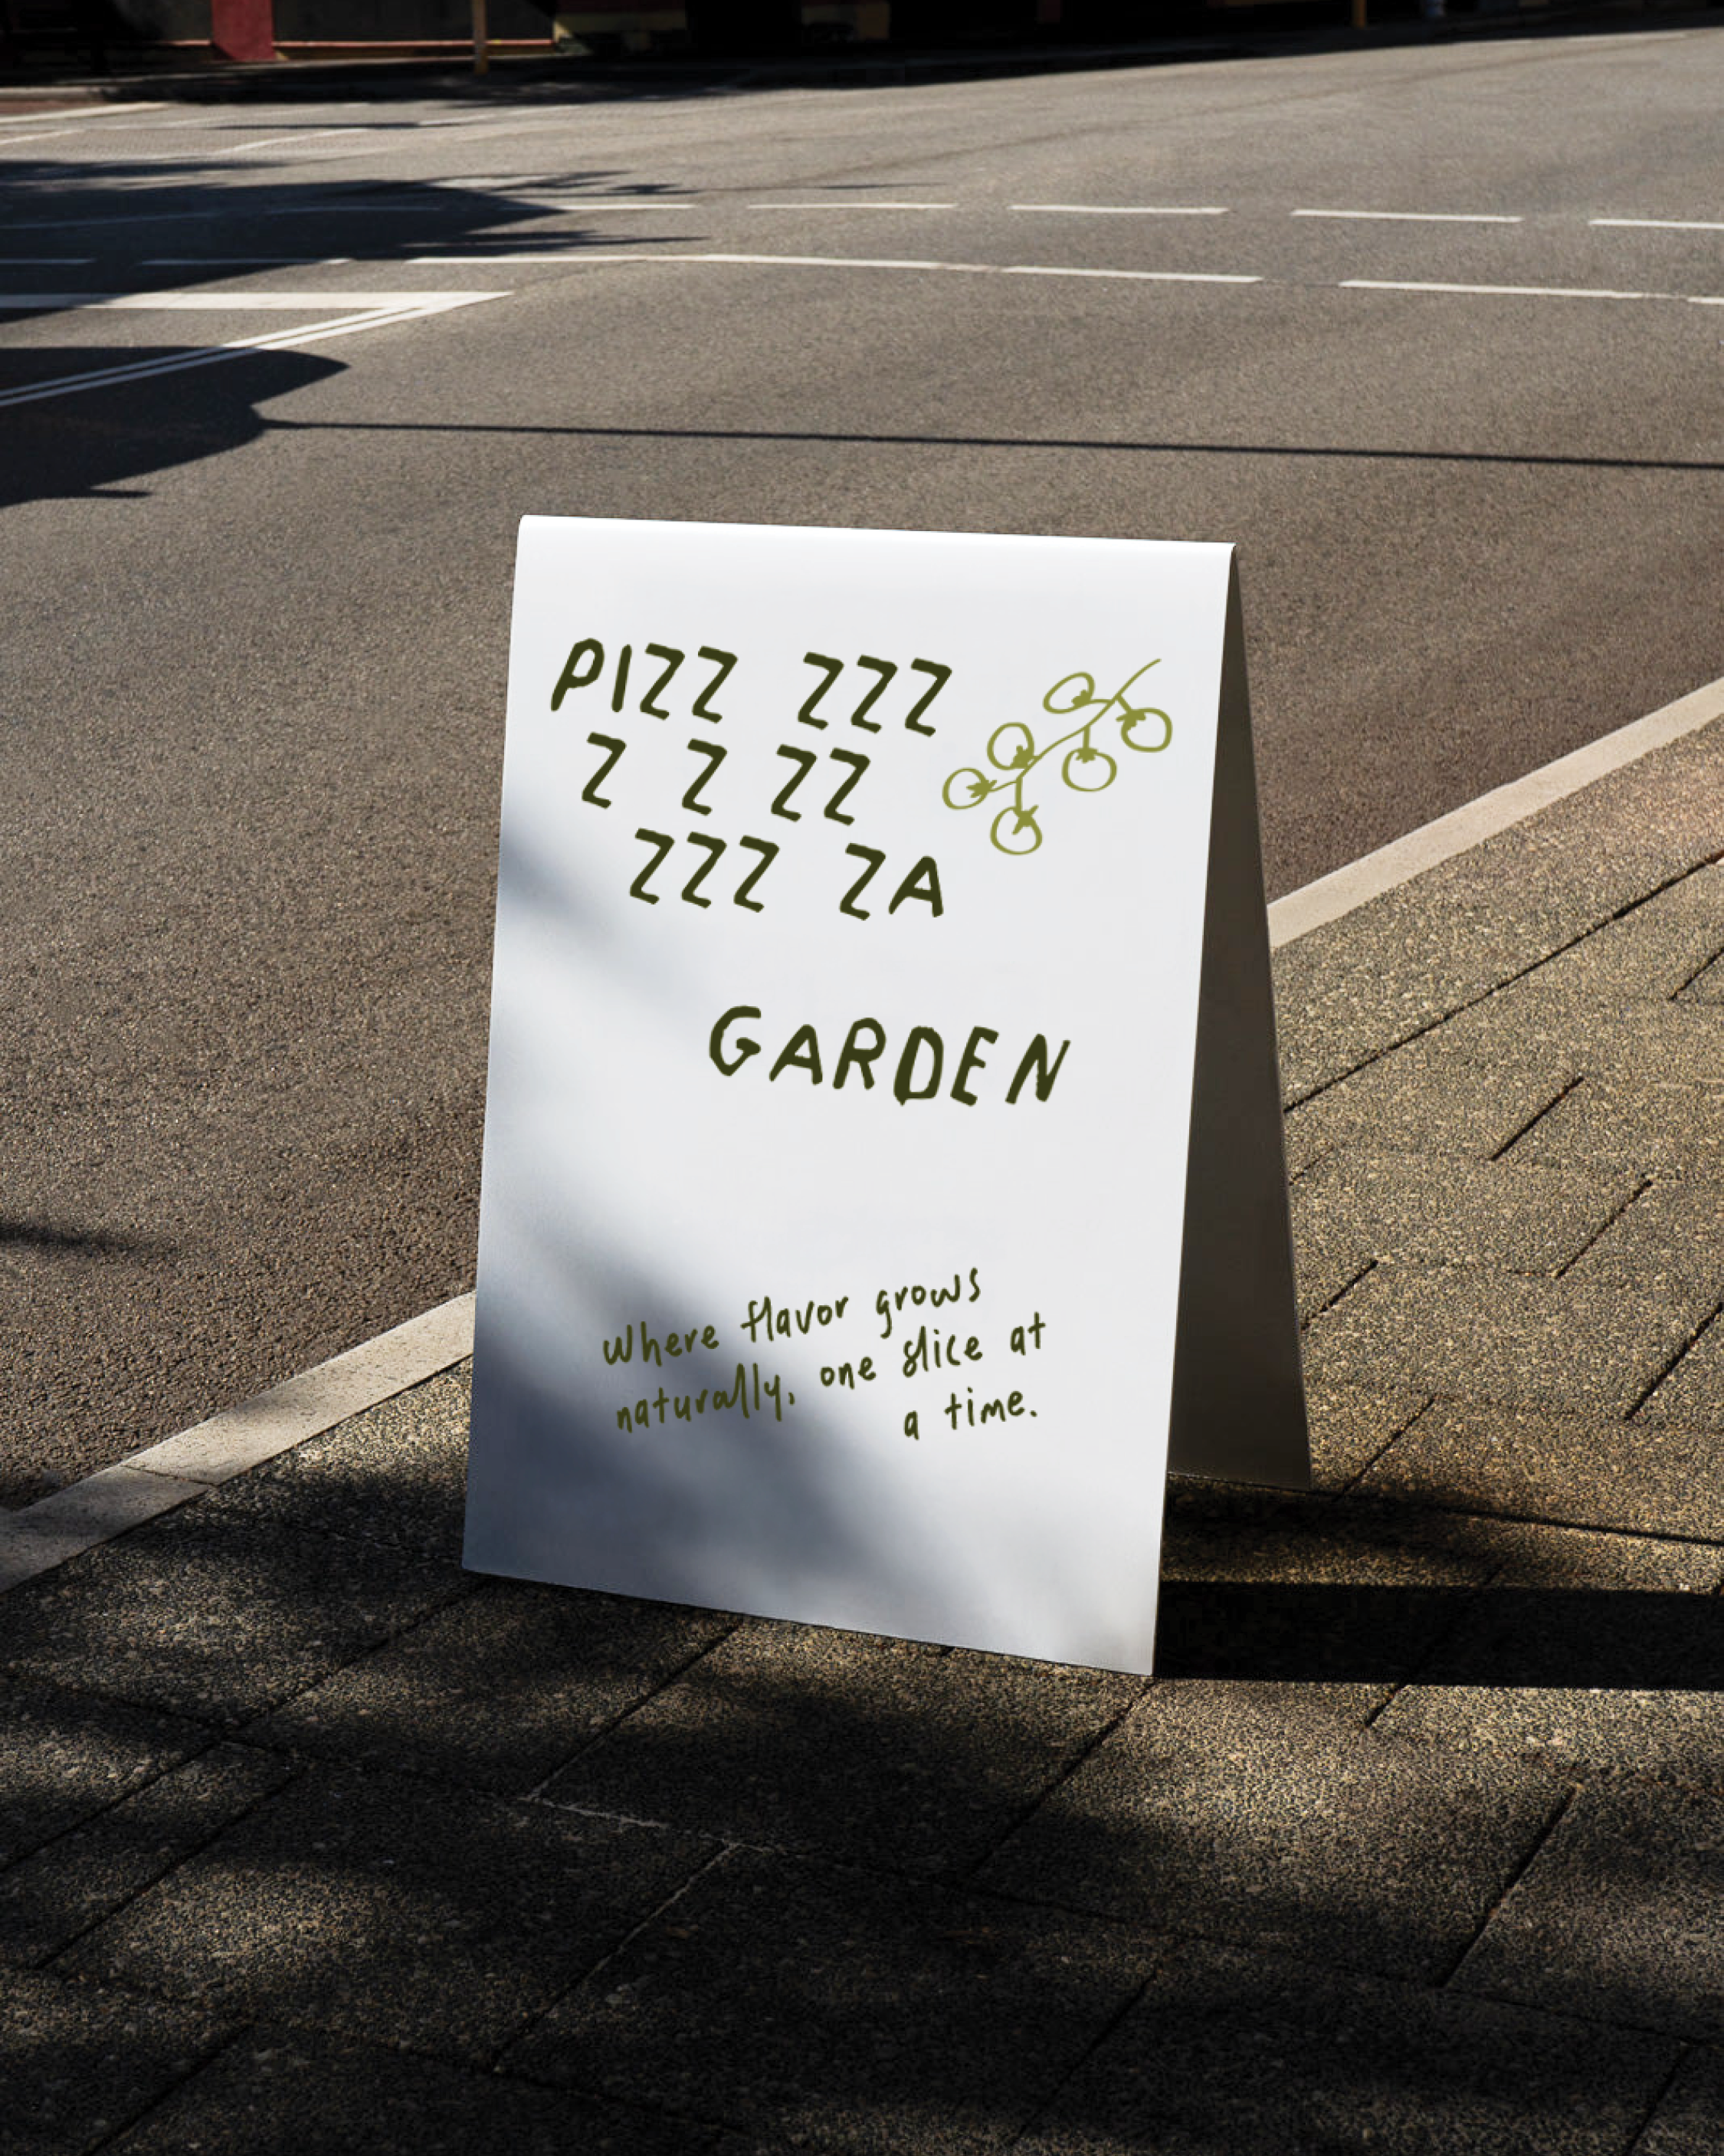 PIZZ ZZZ
Z Z ZZ
ZZZ ZA
GARDEN
where flavor grows
naturally, one slice at
a time.